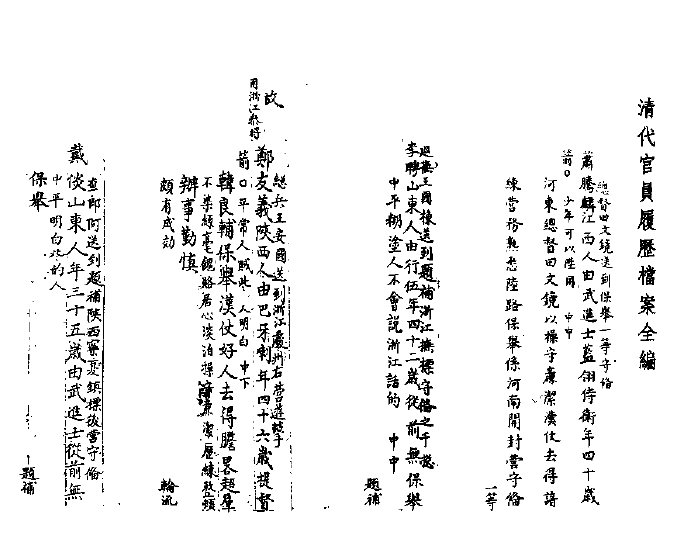 清代官員履歷檔案全編
總督田文鏡送到保舉一等守俻
蕭騰麟江西人由武進士藍翎侍衛年四十歲
箭〇 少年可以陞用 中中
河東總督田文鏡以操守廉潔漢仗去得諳
練營務熟悉陸路保舉係河南開封營守俻
一等
巡撫王國棟送到題補浙江撫標守俻之千總
李聘山東人由行伍年四十二歲從前無保舉
中平糊塗人不會說浙江話的 中中
題補
故
總兵王安國送到浙江處州右營遊擊
鄭友義陝西人由巴牙喇年四十六歲提督
箭〇平常人 人明白 中下
韓良輔保舉漢仗好人去得膽畧超羣
辦事勤慎
頗有成効
輪流
查郎阿送到題補陝西寧夏鎮標後營守俻
戴倓山東人年三十五歲由武進士從前無
中平明白些的人
保舉
題補